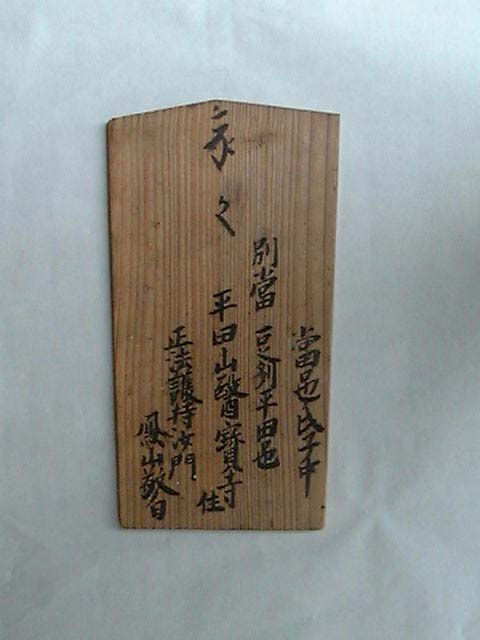 當邑氏子中
別當 豆州平田邑
平田山醫寶寺
住
正法護持沙門
鳳山敬白